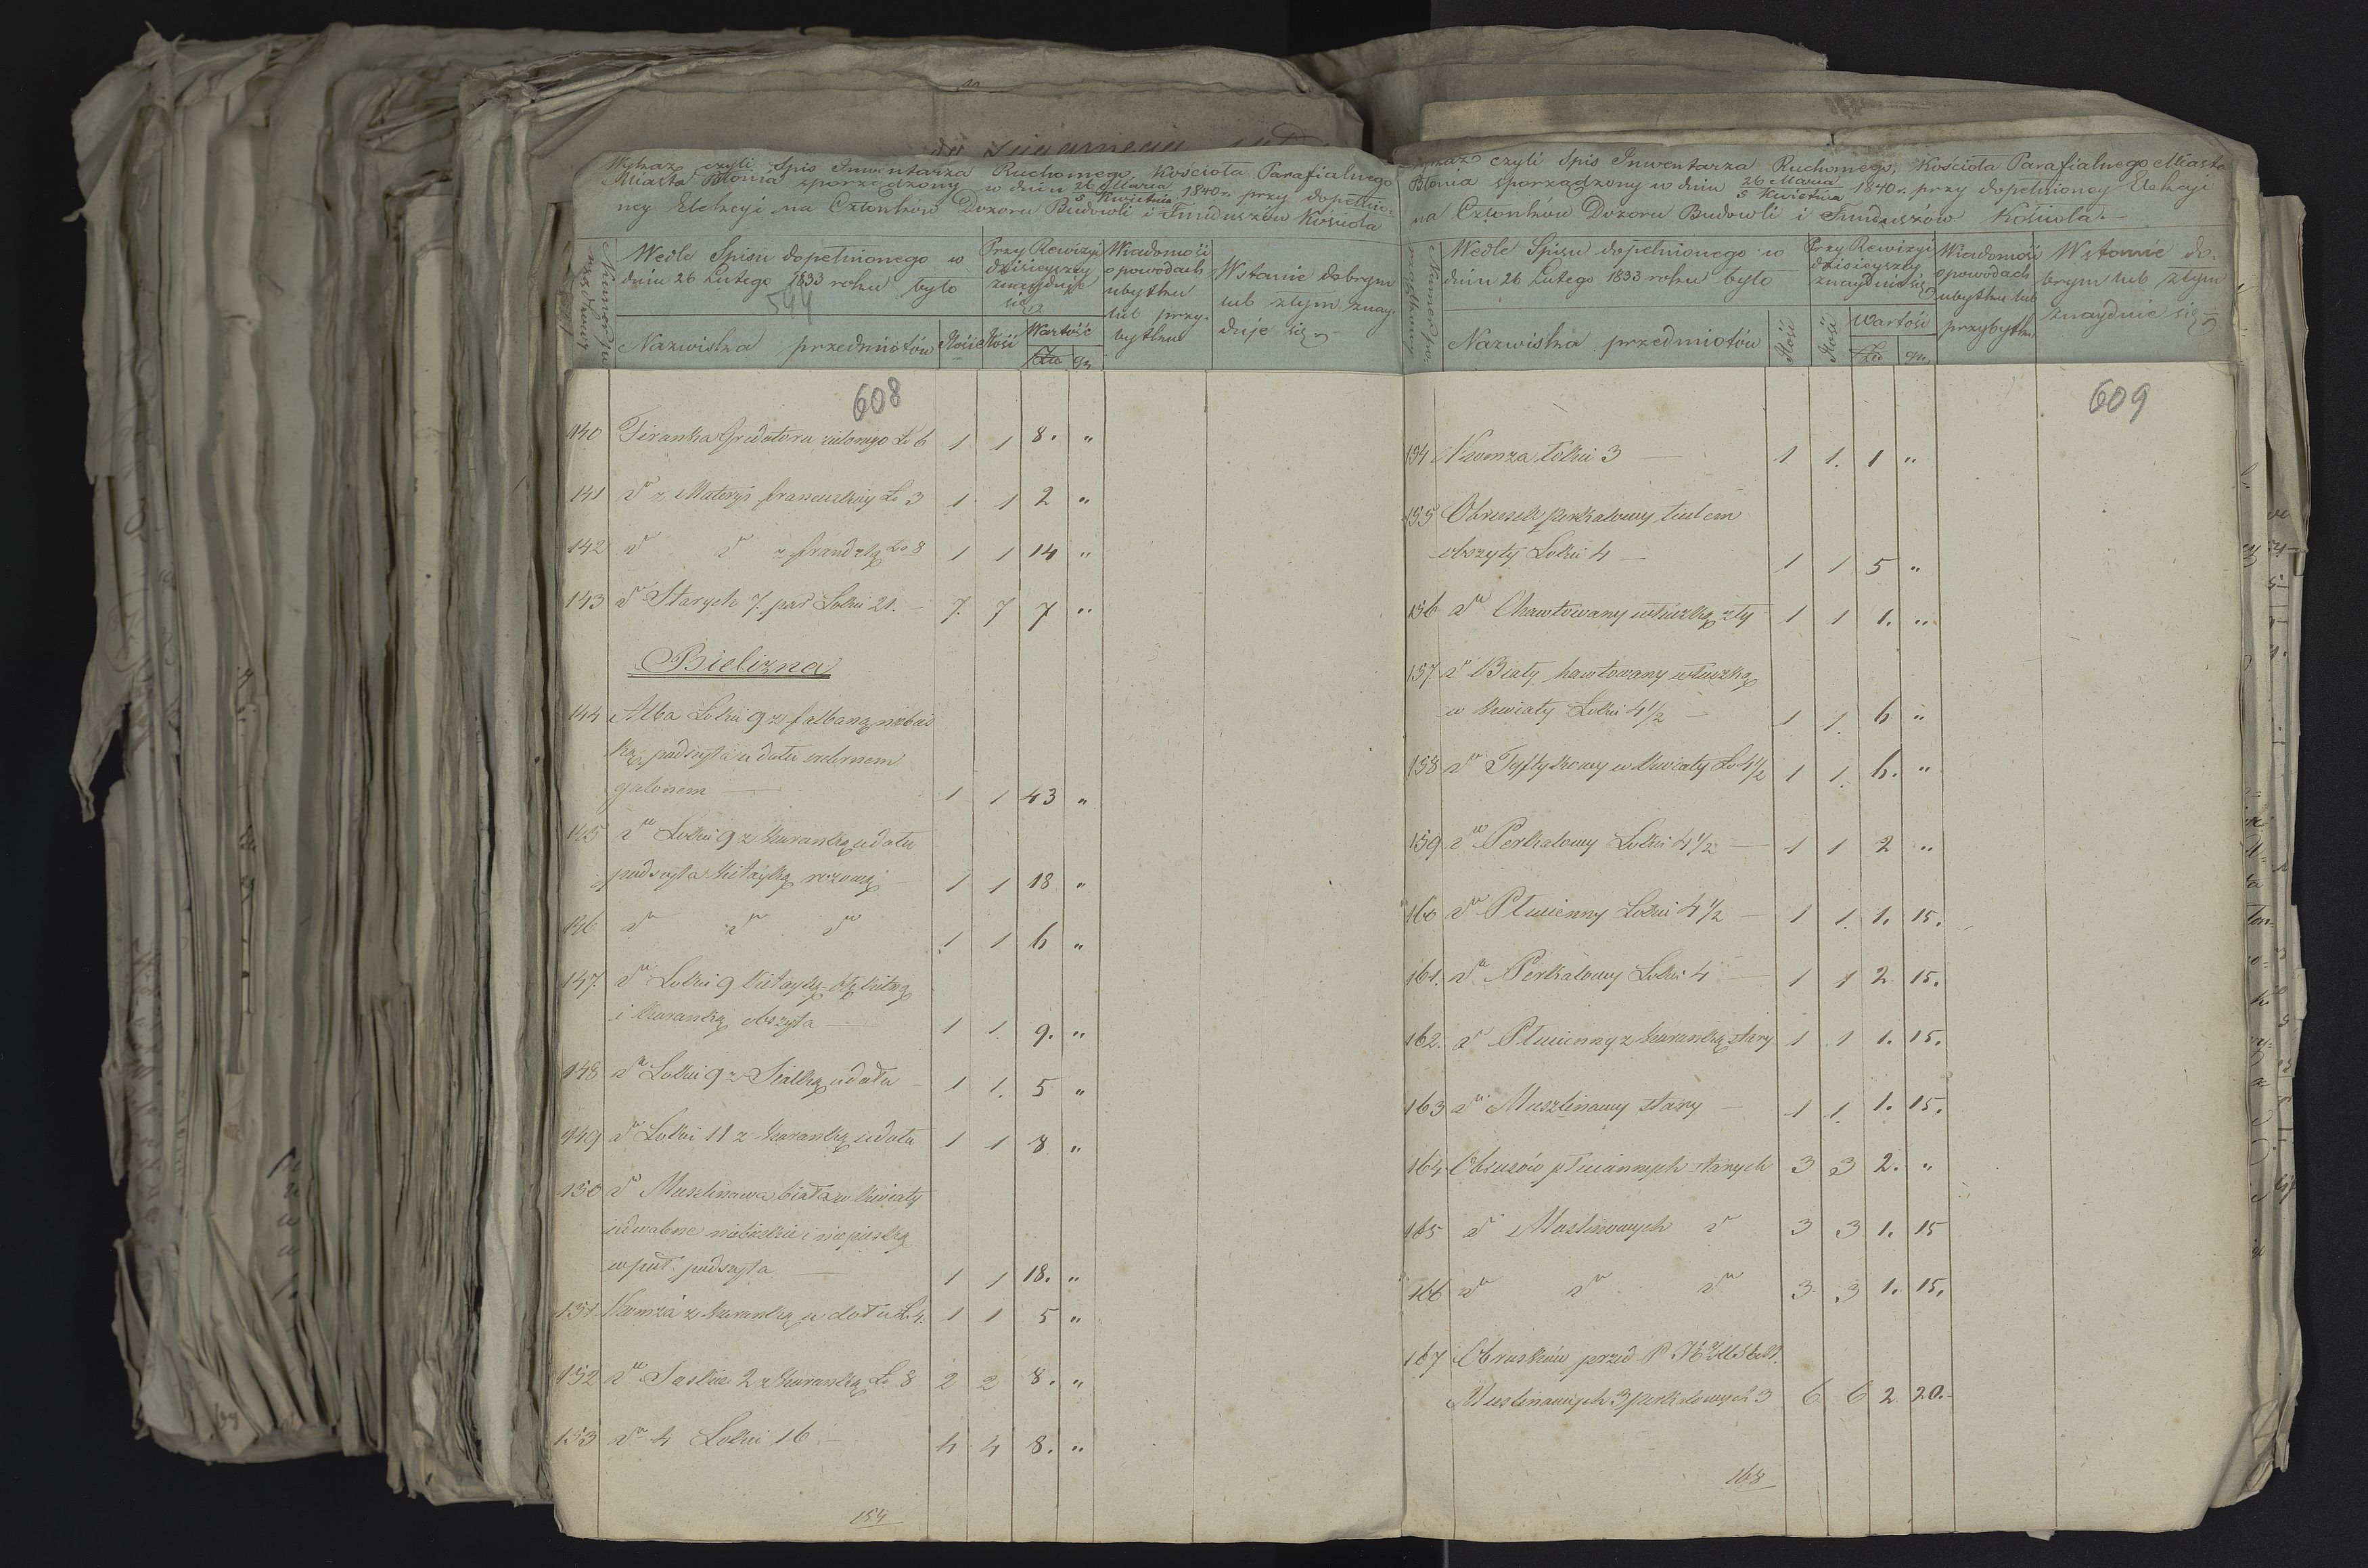 Wykaz czyli Spis Inwentarza Ruchomego Kościoła Parafialnego
Miasta Błonia sporządzony w dniu 26 Marca / 5 Kwietnia 1840 r. przy dopełnio-
ney Elekcyi na Członków Dozoru Budowli i Funduszów Kościoła
Numer porządkowy
Wedle Spisu dopełnionego w
dniu 26 Lutego 1833 roku było
594
Nazwiska przedmiotów
Ilość
Przy Rewizyi
dzisieyszey
znayduje
się
Ilość
Wartość
Złp
gr
Wiadomość
o powodach
ubytku
lub przy-
bytku
W stanie dobrym
lub złym znay-
duje się
608
140 Firanka Gredotoru zielonego Ło 6 1 1 8. "
141 dto z Materyi francuzkiey Ło 3 1 1 2 "
142 dto dto z frandzlą Ło 8 1 1 14 "
143 dto Starych 7 par Łokci 21. 7. 7 7 "
Bielizna
144 Alba Łokci 9 z falbaną niebies
ką podszyta u dołu srebrnem
galonem — 1 1 43 "
145 dto Łokci 9 z koronką u dołu
podszyta kitayką rozową 1 1 18 "
146 dto dto dto 1 1 6 "
147. dto Łokci 9 kitayką błękitną
i koronką obszyta — 1 1. 9. "
148 dto Łokci 9 z Siatką u dołu 1 1. 5 "
149 dto Łokci 11 z koronką u dołu 1 1 8 "
150 dto Muszlinowa biała w kwiaty
jedwabne niebieskie i
podszyta — 1 1 18. "
151. Komża z koronką u dołu Ł. 4. 1 1 5 "
152 dto 2 z koronką Ło 8 2 2 8. "
153 dto 4 Łokci 16 — 4 4 8. "
154
Wykaz czyli Spis Inwentarza Ruchomego, Kościoła Parafialnego Miasta
Błonia sporządzony w dniu 26 Marca / 5 Kwietnia 1840 r. przy dopełnioney Elekcyi
na Członków Dozoru Budowli i Funduszów Kościoła. —
Numer porządkowy
Wedle Spisu dopełnionego w
dniu 26 Lutego 1833 roku było
Nazwiska przedmiotów
Ilość
Przy Rewizyi
dzisieyszey
znayduie się
Ilość
Wartość
Złp
gr.
Wiadomość
o powodach
ubytku lub
przybytku
W stanie do-
brym lub złym
znayduie się
609
154 Komża Łokci 3 — 1 1. 1 "
155 Obrusek perkalowy tiulem
obszyty Łokci 4 — 1 1 5 "
156 dto Chawtowany włuczką zły 1 1 1. "
157. dto Biały hawtowany włuczką
w kwiaty Łokci 4 1/2 — 1 1. 6 "
158 dto Tyftykowy w kwiaty Ło 4 1/2 1 1. 6. "
159 dto Perkalowy Łokci 4 1/2 — 1 1 2 "
160 dto Płucienny Łokci 4 1/2 — 1 1. 1. 15.
161. dto Perkalowy Łokci 4 — 1 1 2 15.
162. dto Płucienny z koronką stary 1 1 1. 15.
163 dto Muszlinowy stary — 1 1. 1. 15.
164 Obrusów płuciennych starych 3 3 2. "
165 dto Muslinowych dto 3 3 1. 15
166 dto dto dto 3. 3 1. 15.
167 Obrusków przed P.
Muslinowych 3 perkalowych 3 6 6 2 20.
168